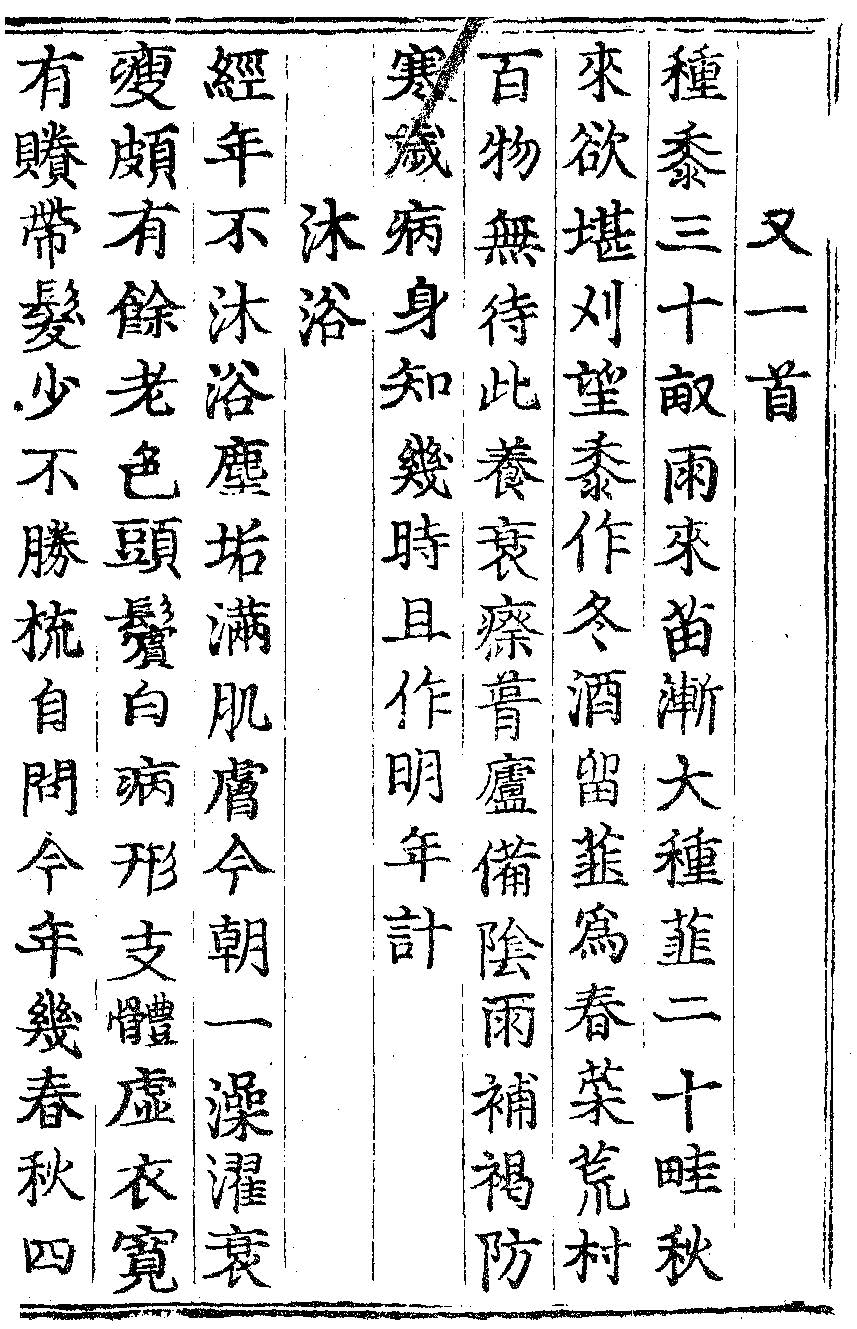 又一首
種黍三十畝雨來苗漸大種韮二十畦秋
來欲堪刈望黍作冬酒留韮爲春菜荒村
百物無待此養衰瘵葺廬備陰雨補褐防
寒歲病身知幾時且作明年計
沐浴
經年不沐浴塵垢滿肌膚今朝一澡濯衰
瘦頗有餘老色頭鬢白病形支體虛衣寬
有賸帶髮少不勝梳自問今年幾春秋四